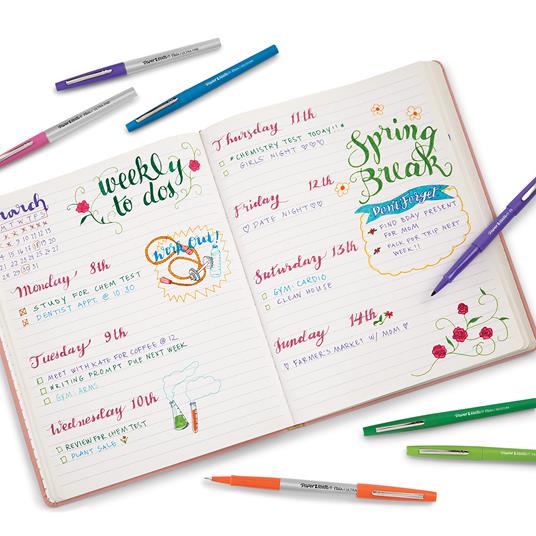 March
weekly
to dos!
Work Out!
Monday 8th
STUDY FOR CHEM TEST
DENTIST APPT. @ 10:30
Tuesday 9th
MEET WITH KATE FOR COFFEE @ 12
WRITING PROMPT DUE NEXT WEEK
GYM: ARMS
Wednesday 10th
REVIEW FOR CHEM TEST
PLANT SALE
Thursday 11th
*CHEMISTRY TEST TODAY!!*
GIRLS NIGHT ♡♡♡
Friday 12th
♡ DATE NIGHT ♡♡
Saturday 13th
GYM: CARDIO
CLEAN HOUSE
Sunday 14th
♡ FARMER'S MARKET W/ MOM ♡
Spring
Break
Don't Forget
FIND BDAY PRESENT
FOR MOM
PACK FOR TRIP NEXT
WEEK!!
Paper Mate
Paper Mate
Paper Mate
Paper Mate
Paper Mate
Paper Mate
Paper Mate